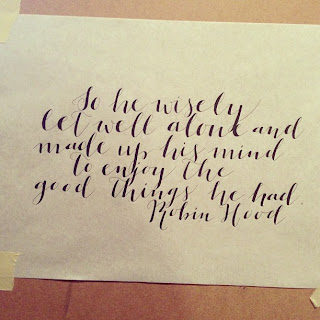 So he wisely
let well alone and
made up his mind
to enjoy the
good things he had.
Robin Hood